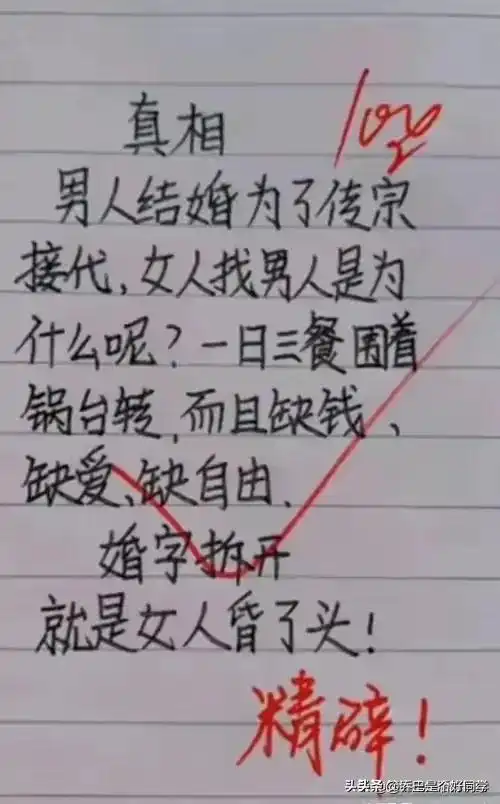 真相
100
男人结婚为了传宗
接代,女人找男人是为
什么呢?一日三餐围着
锅台转,而且缺钱、
缺爱、缺自由.
婚字拆开
就是女人昏了头!
精辟!
头条@乔巴是个好同学